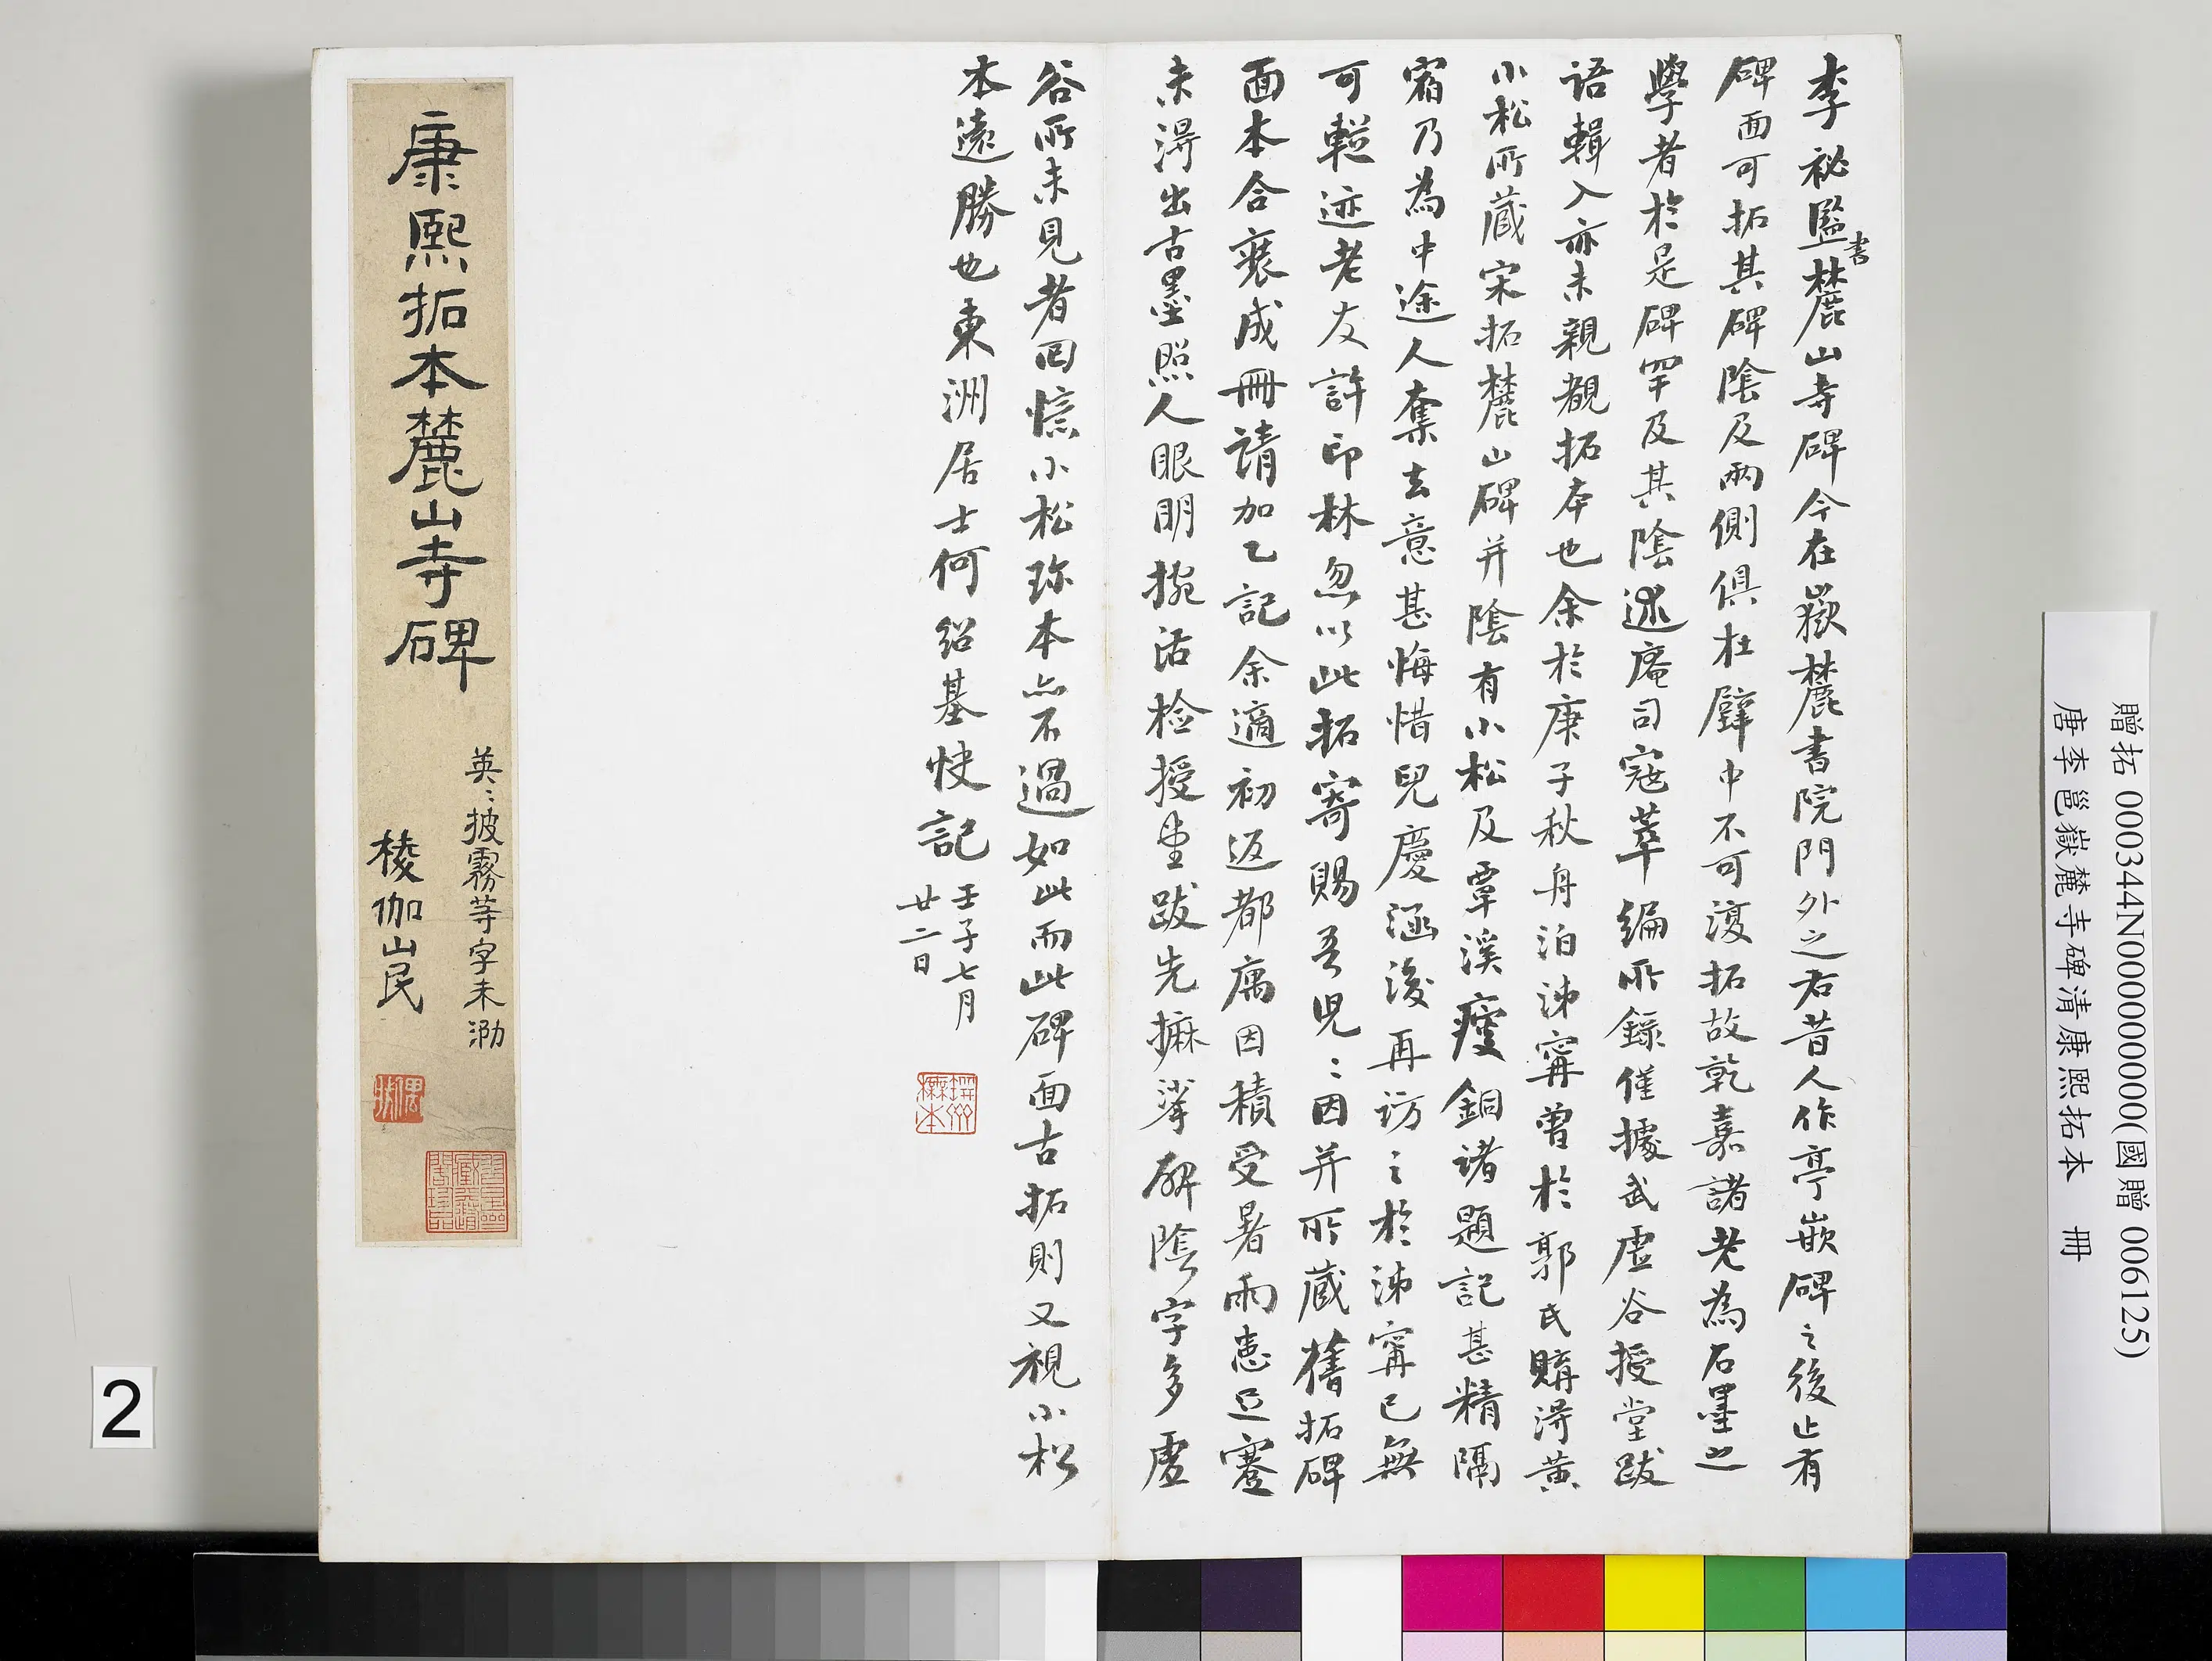 李祕監書麓山寺碑今在嶽麓書院門外之右昔人作亭嵌碑之後止有
碑面可拓其碑陰及兩側俱在壁中不可復拓故乾嘉諸老為石墨之
學者於是碑罕及其陰述庵司寇萃編所錄僅據武虛谷授堂跋
語輯入亦未親覩拓本也余於庚子秋舟泊沛甯曾於郭氏購得黃
小松所藏宋拓麓山碑并陰有小松及覃溪瘦銅諸題記甚精隔
宿乃為中途人奪去意甚悔惜兒慶涵後再訪之於沛甯已無
可蹤迹老友許印林忽以此拓寄賜吾兒〻因并所藏舊拓碑
面本合裝成冊請加乙記余適初返都寓因積受暑雨患足蹇
未得出古墨照人眼明捥活檢授堂跋先摩挲碑陰字多虛
谷所未見者回憶小松珎本亦不過如此而此碑面古拓則又視小松
本遠勝也東洲居士何紹基快記 壬子七月
廿二日
康熙拓本麓山寺碑
英〻披霧等字未泐
棱伽山民
贈拓 000344N000000000(國贈 006125)
唐李邕嶽麓寺碑清康熙拓本 冊
2